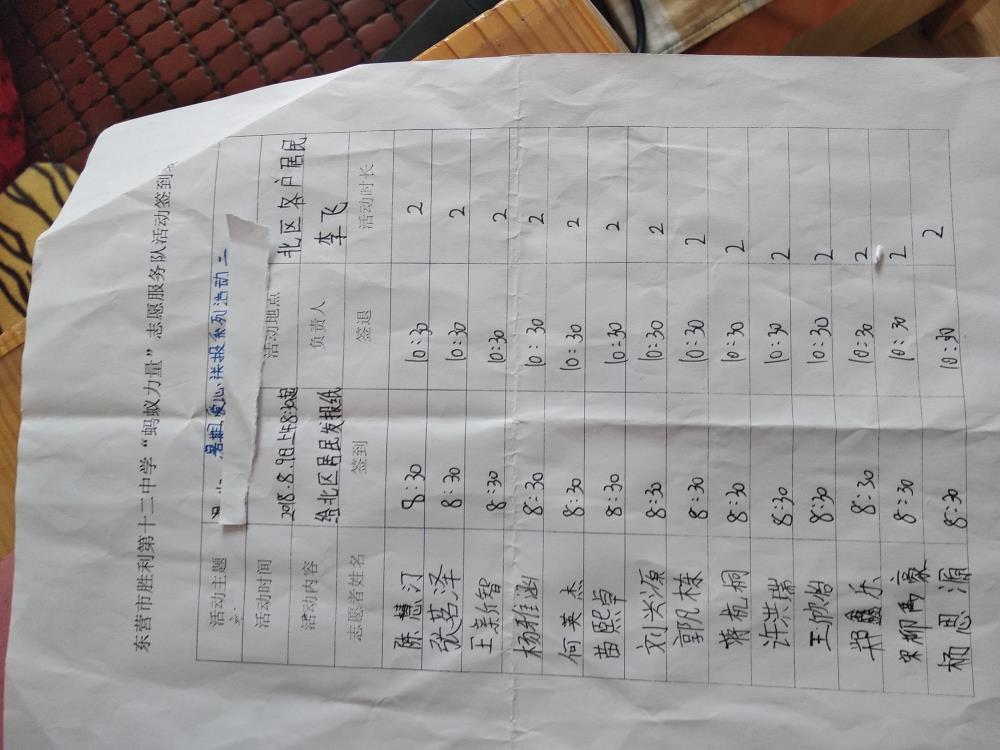 东营市胜利第十二中学“蚂蚁力量”志愿服务队活动签到
活动主题 暑期爱心送报系列活动二
活动时间 2018.8.9日上午8:30起 活动地点 北区客户居民
活动内容 给北区居民发报纸 负责人 李飞
志愿者姓名 签到 签退 活动时长
陈慧汀 8:30 10:30 2
张茗泽 8:30 10:30 2
王新智 8:30 10:30 2
杨雅涵 8:30 10:30 2
何英杰 8:30 10:30 2
苗熙卓 8:30 10:30 2
刘兴源 8:30 10:30 2
郭凡栋 8:30 10:30 2
蒋杭桐 8:30 10:30 2
许洪瑞 8:30 10:30 2
王欣怡 8:30 10:30 2
郑鑫乐 8:30 10:30 2
柳高豪 8:30 10:30 2
杨思涵 8:30 10:30 2